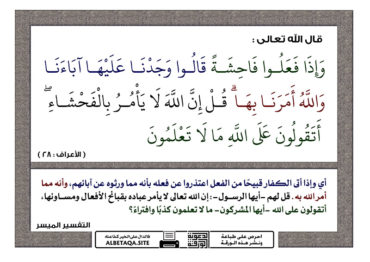 قال الله تعالى :
وَإِذَا فَعَلُوا فَاحِشَةً قَالُوا وَجَدْنَا عَلَيْهَا آبَاءَنَا
وَاللَّهُ أَمَرَنَا بِهَا ۗ قُلْ إِنَّ اللَّهَ لَا يَأْمُرُ بِالْفَحْشَاءِ ۖ
أَتَقُولُونَ عَلَى اللَّهِ مَا لَا تَعْلَمُونَ
( الأعراف : ٢٨ )
أي وإذا أتى الكفار قبيحًا من الفعل اعتذروا عن فعله بأنه مما ورثوه عن آبائهم، وأنه مما
أمر الله به. قل لهم -أيها الرسول-: إن الله تعالى لا يأمر عباده بقبائح الأفعال ومساوئها،
أتقولون على الله -أيها المشركون- ما لا تعلمون كذبًا وافتراءً؟
التفسير الميسر
احرص على طباعة
ونشر هذه الورقة
دعوية
الورقة
فالدال على الخير كفاعله
ALBETAQA.SITE